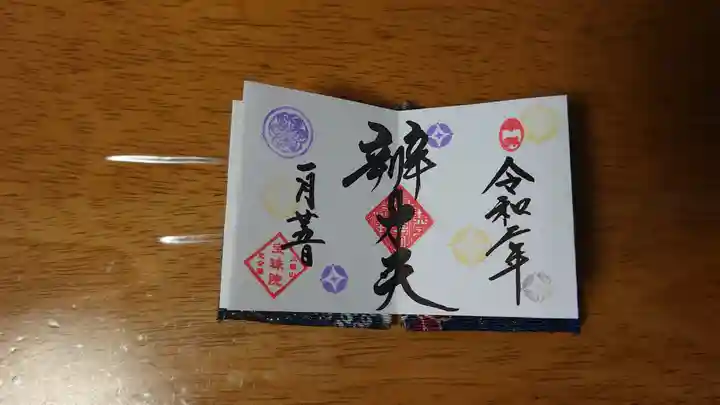 令和二年
辨才天
一月廿五日
宝珠院